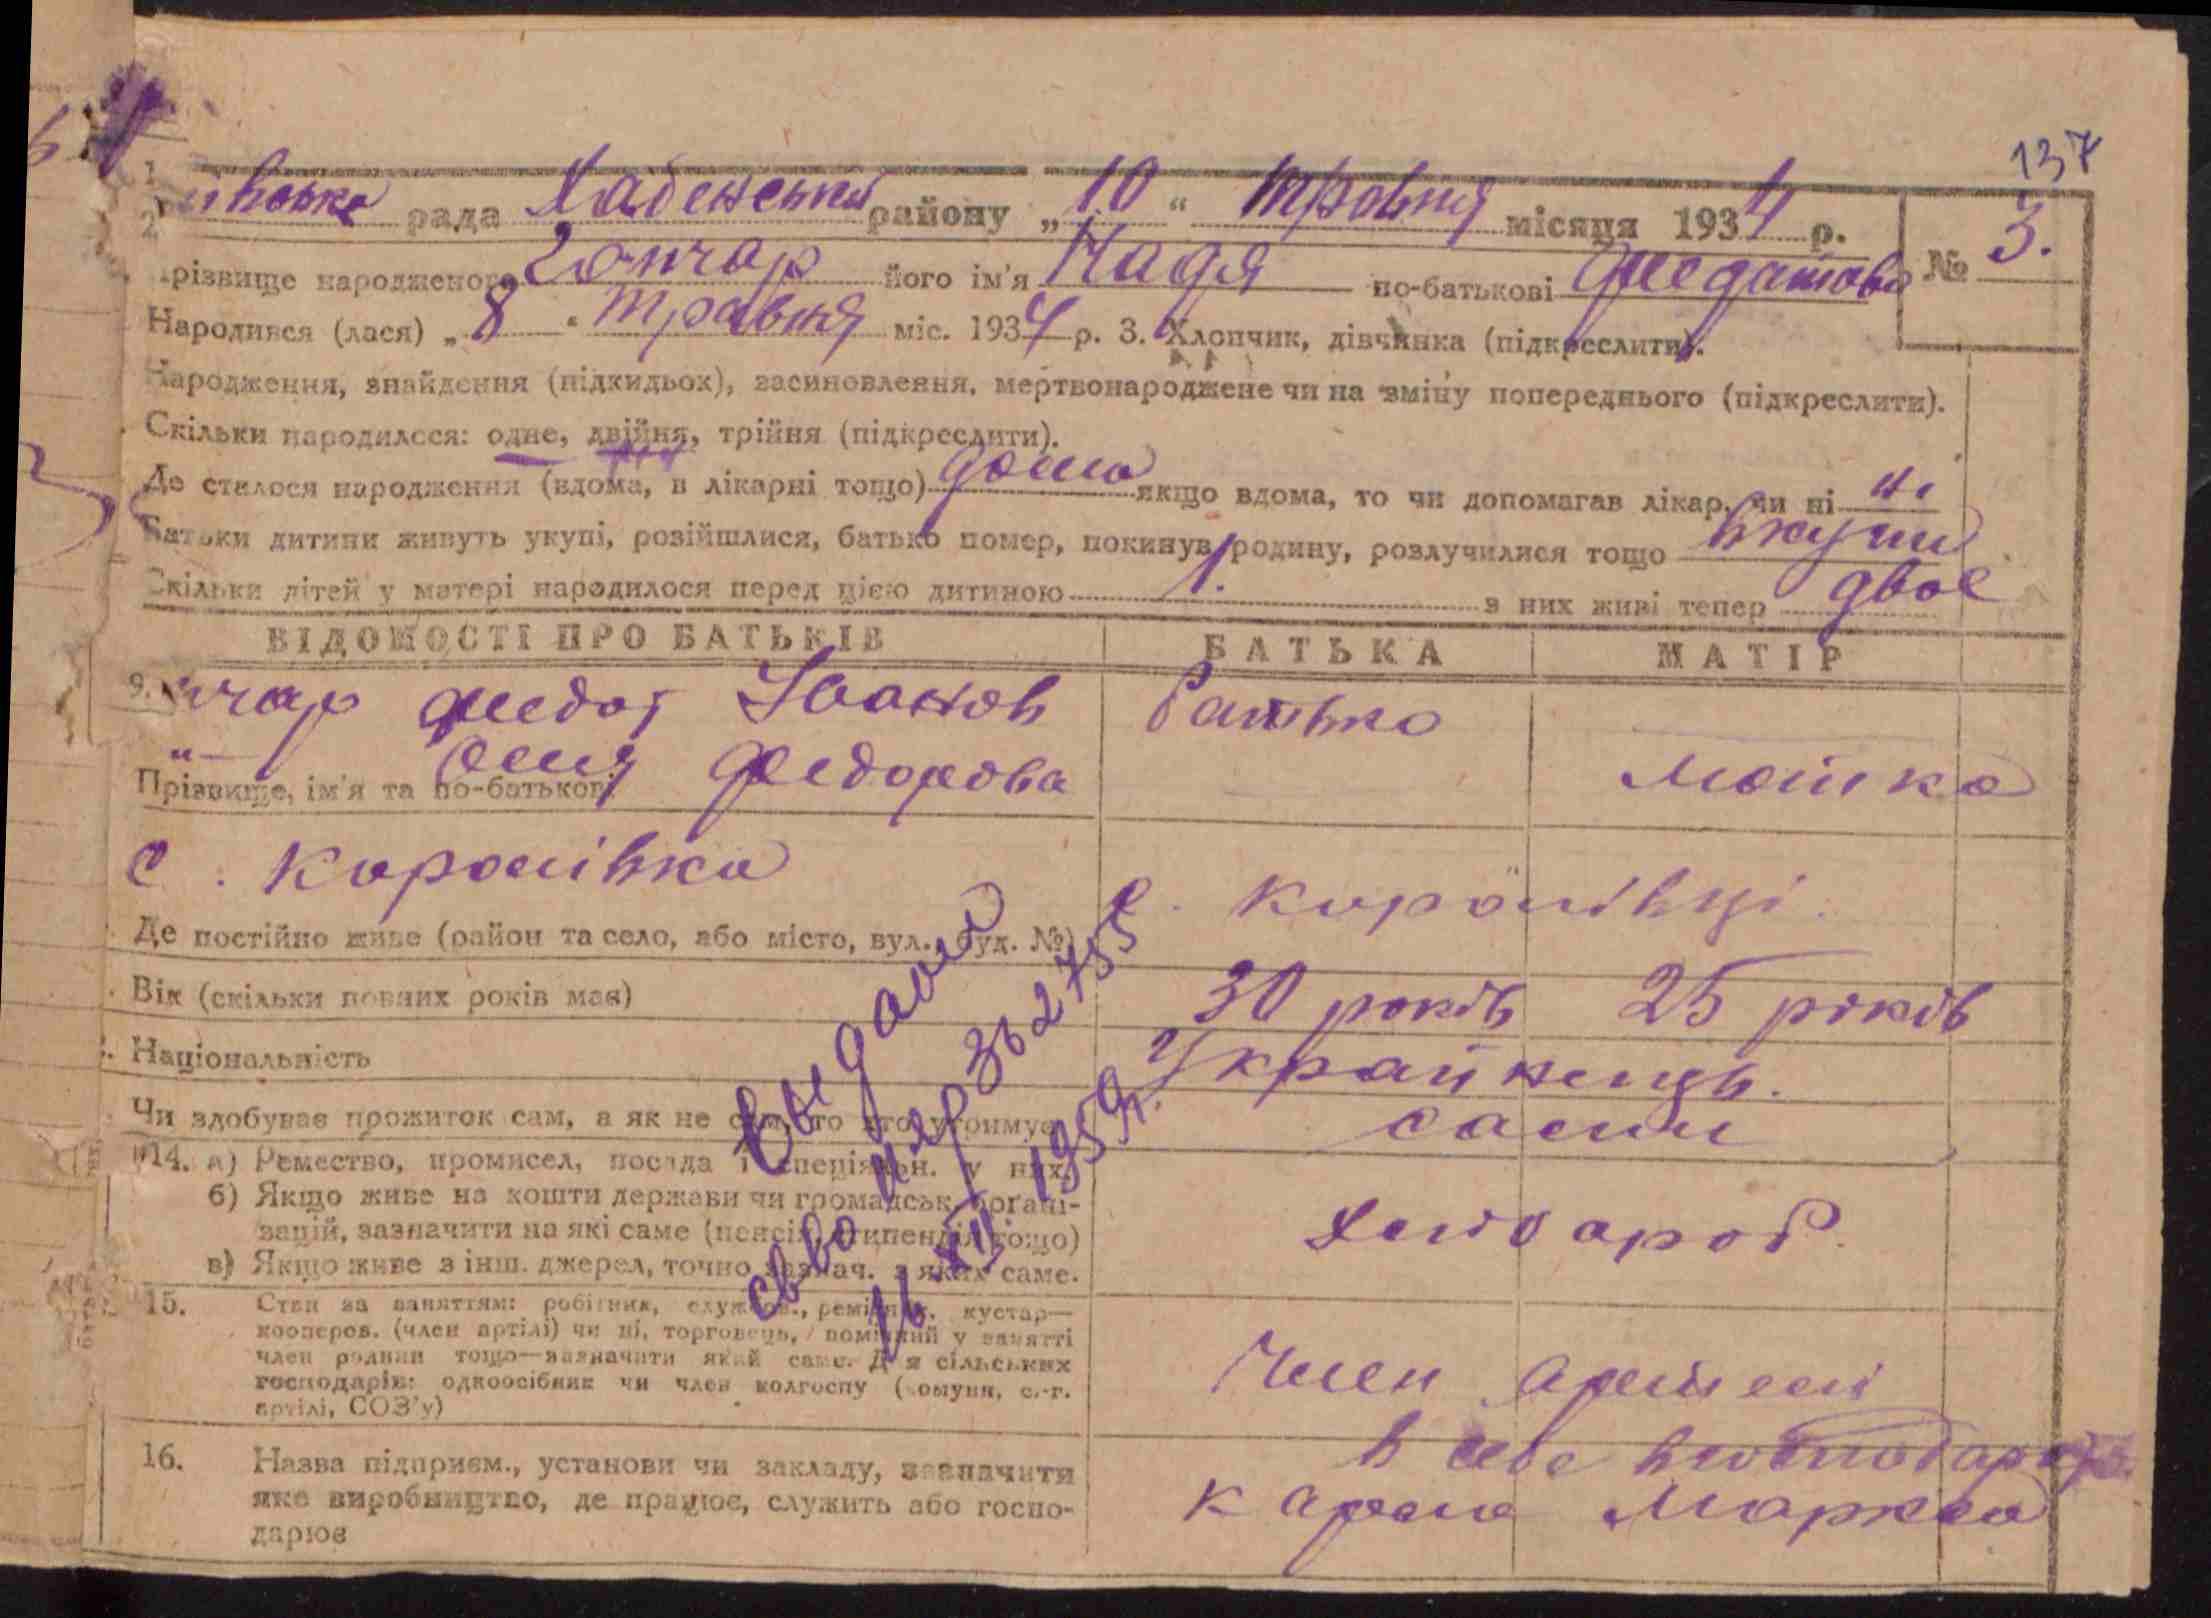 137
рада Хабенський району „ 10 “ травня місяця 1934 р.
№ 3.
прізвище народженого Гончар його ім'я Надя по-батькові Федатова
Народився (лася) „ 8 “ травня міс. 1934 р. 3. Хлопчик, дівчинка (підкреслити).
Народження, знайдення (підкидьок), засиновлення, мертвонароджене чи на зміну попереднього (підкреслити).
Скільки народилося: одне, двійня, трійня (підкреслити).
Де сталося народження (вдома, в лікарні тощо) дома якщо вдома, то чи допомагав лікар, чи ні ні
Батьки дитини живуть укупі, розійшлися, батько помер, покинув родину, розлучилися тощо вкупи
Скільки дітей у матері народилося перед цією дитиною 1. з них живі тепер двое
ВІДОМОСТІ ПРО БАТЬКІВ БАТЬКА МАТІР
9. чар Федот Иванов Батько
"— Федорова Матка
Прізвище, ім'я та по-батькові
с.
Де постійно живе (район та село, або місто, вул., буд. №) с.
Вік (скільки повних років має) 30 років 25 років
Національність Украйнець.
Чи здобуває прожиток сам, а як не сам, то хто утримує сами
14. а) Ремество, промисел, посада і спеціяльн. у них.
б) Якщо живе на кошти держави чи громадськ. організацій, зазначити на які саме (пенсія, стипендія тощо)
в) Якщо живе з інш. джерел, точно зазнач. з яких саме.
хлібороб
15. Стан за заняттям: робітник, службов., ремісник, кустар—
кооперов. (член артілі) чи ні, торговець, помічний у занятті
член родини тощо—зазначити який саме. Для сільських
господарів: одноосібник чи член колгоспу (комуни, с.-г.
артілі, СОЗ'у)
Член артелі
16. Назва підприєм., установи чи закладу, зазначити
яке виробництво, де працює, служить або госпо-
дарює
в себе в господарс
Карла Маркса
Выдано
св-во 362755
16 XII 1959 г.